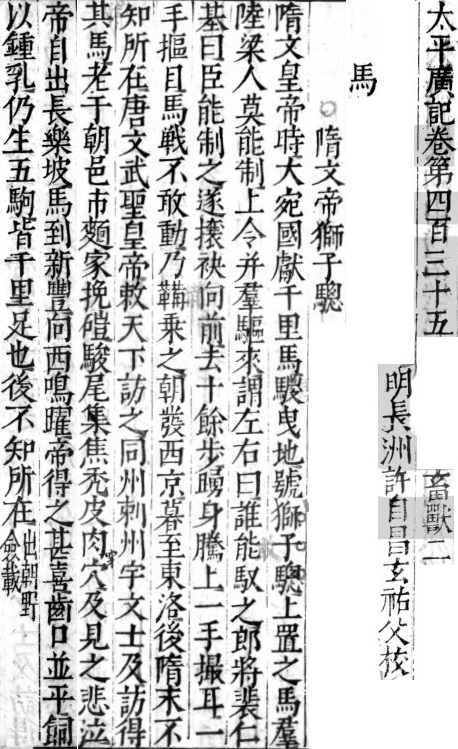 太平廣記卷第四百三十五
明長洲許自昌玄祐父校
畜獸二
馬
隋文帝獅子驄
隋文皇帝時大宛國獻千里馬騣曳地號獅子驄上置之馬羣
陸梁人莫能制上令并羣驅來謂左右曰誰能馭之郎將裴仁
基曰臣能制之遂攘袂向前去十餘步踴身騰上一手撮耳一
手摳目馬戰不敢動乃鞲乘之朝發西京暮至東洛後隋末不
知所在唐文武聖皇帝敕天下訪之同州刺州宇文士及訪得
其馬老于朝邑市麵家挽磑駿尾焦禿皮肉穴及見之悲泣
帝自出長樂坡馬到新豐向西鳴躍帝得之甚喜齒口並平飼
以鍾乳仍生五駒皆千里足也後不知所在出朝野僉載